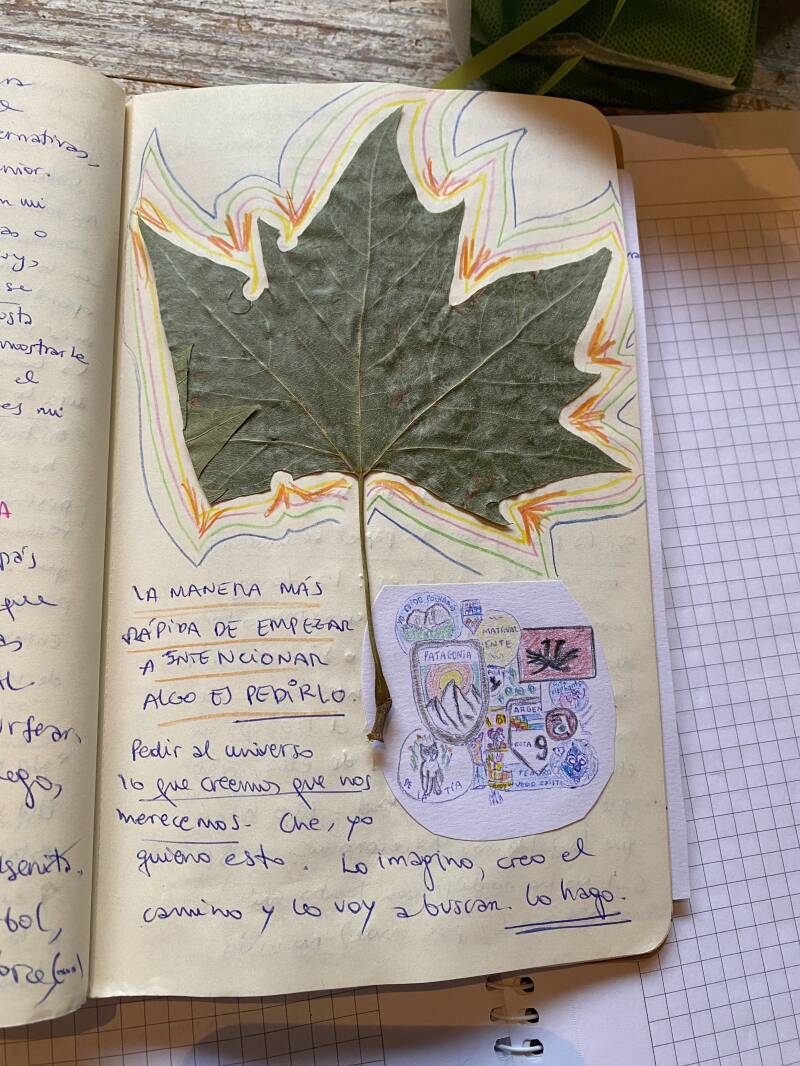 ernativas
nior.
n mi
as o
se
osta
mostrarle
el
es mi
A
que
as
urfear,
bol,
LA MANERA MÁS
RÁPIDA DE EMPEZAR
A INTENCIONAR
ALGO ES PEDIRLO.
Pedir al universo
lo que creemos que nos
merecemos. Che, yo
quiero esto. Lo imagino, creo el
camino y lo voy a buscar. Lo hago.
MATERNAL
ENTE
PATAGONIA
ARGEN
RUTA 9
DE LA TÍA